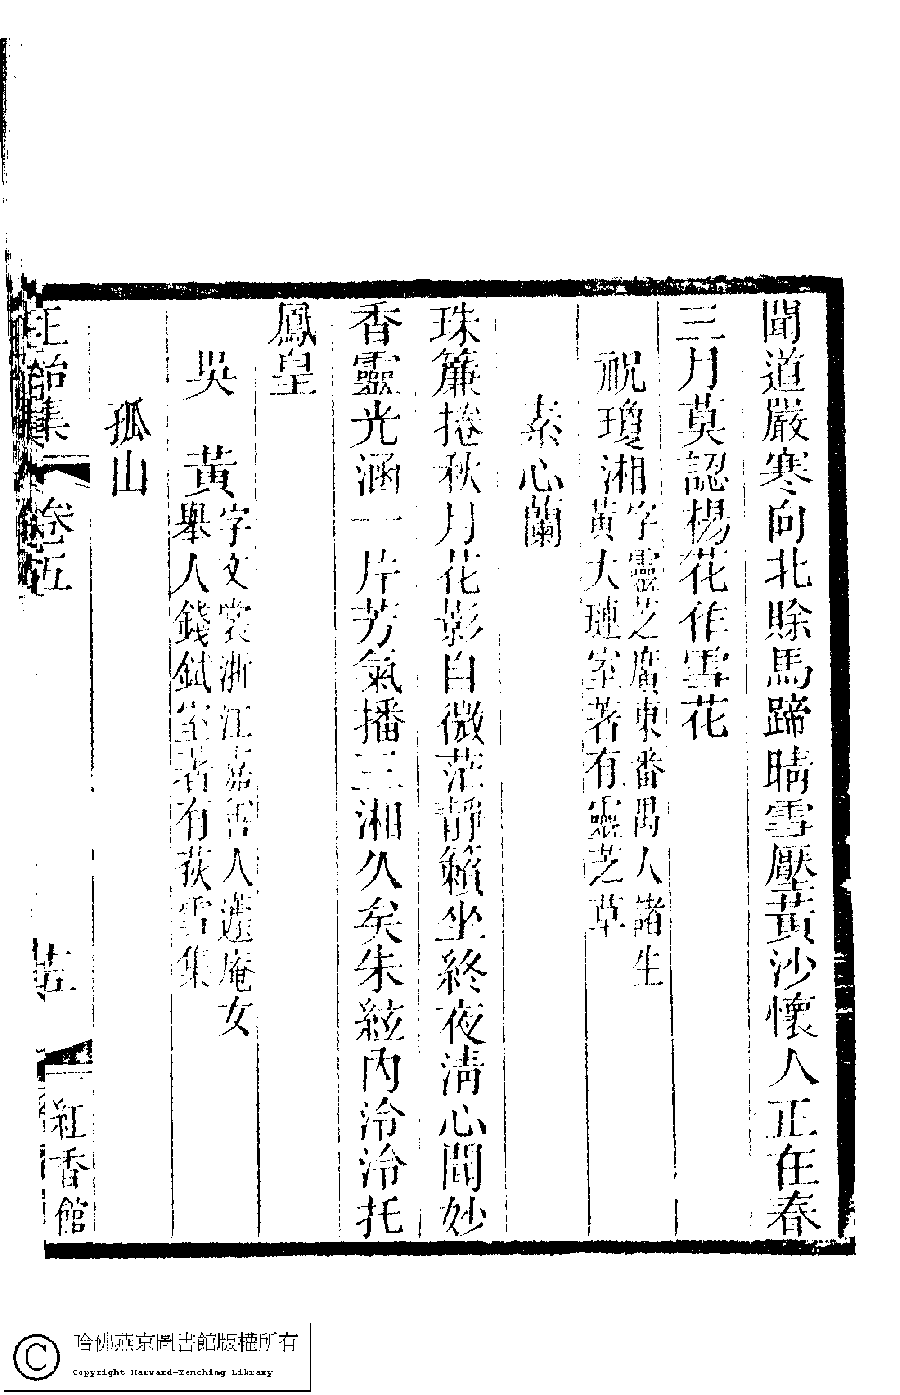 聞道嚴寒向北賒馬蹄晴雪壓黃沙懷人正在春
三月莫認楊花作雪花
祝瓊湘字靈芝廣東番禺人諸生
黃大璉室著有靈芝草
素心蘭
珠簾捲秋月花影自微茫靜籟坐終夜清心聞妙
香靈光涵一片芳氣播三湘久矣朱絃內泠泠托
鳳皇
吳　黃字文裳浙江嘉善人遯庵女
舉人錢鉽室著有荻雪集
孤山
玉臺集　卷五
紅香館
哈佛燕京圖書館版權所有
Copyright Harvard-Yenching Library